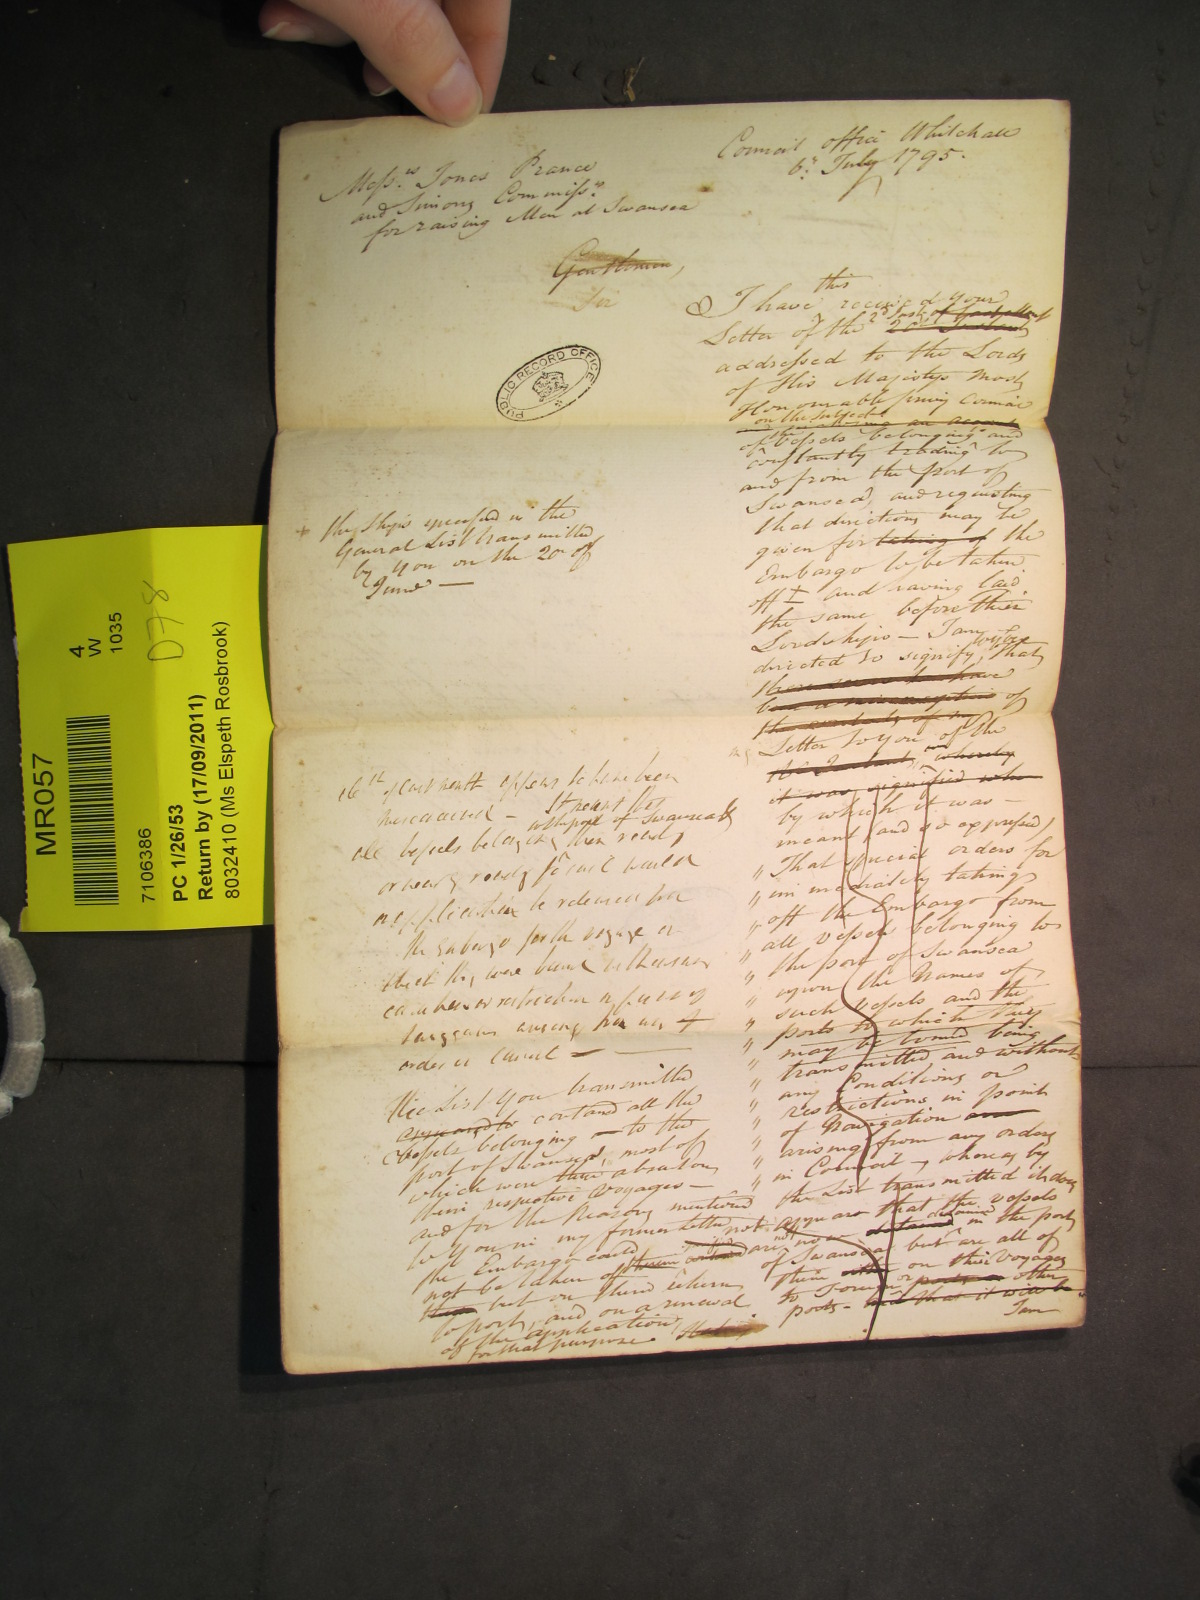 Council office Whitehall
6th July 1795.
Messrs Jones Prance
and Simons Commissrs
for raising Men at Swansea
Gentlemen,
Sir
this
I have received your
Letter of the 2d Inst
addressed to the Lords
of His Majesty's most
Honourable privy Council
on the subject
of Vessels belonging and
constantly trading to
and from the port of
Swansea, and requesting
that directions may be
given for taking of the
Embargo to be taken
off + and having laid
the same before their
Lordships - I am
directed to signify, that
there seems to have
been a misconception of
the contents of my
Letter to you of the
whereby
it was signified
by which it was -
meant (and so expressed)
" That special orders for
" immediately taking
" off the Embargo from
" all vessels belonging to
" the port of Swansea
" upon the Names of
" such Vessels and the
" ports to which they
" may be bound being
" transmitted and without
" any Conditions or
" restrictions in point
" of Navigation
" arising from any orders
" in Council -, whereas by
the List transmitted it does
not appear that the vessels
are now detained in the port
of Swansea but are all of
them on their Voyages
to Foreign or other
ports - and that it will be
I am
+ the Ships specified in the
General List transmitted
by you on the 20 of
June -
16th of last month appears to have been
misconceived - It meant that
all Vessels belonging
ready
or nearly ready to sail would
on application be released from
the Embargo for the voyage
restriction
arising from any
order in Council -
The List you transmitted
appeared to contain all the
Vessels belonging - to the
port of Swansea, most of
which were then absent on
their respective Voyages -
and for the Reasons mentioned
to you in my former letter
the Embargo could
not be taken off
but on their return
to port, and on a renewal
of the application
for that purpose.
PUBLIC RECORD OFFICE
MR057
4
W
1035
D78
7106386
PC 1/26/53
Return by (17/09/2011)
8032410 (Ms Elspeth Rosbrook)